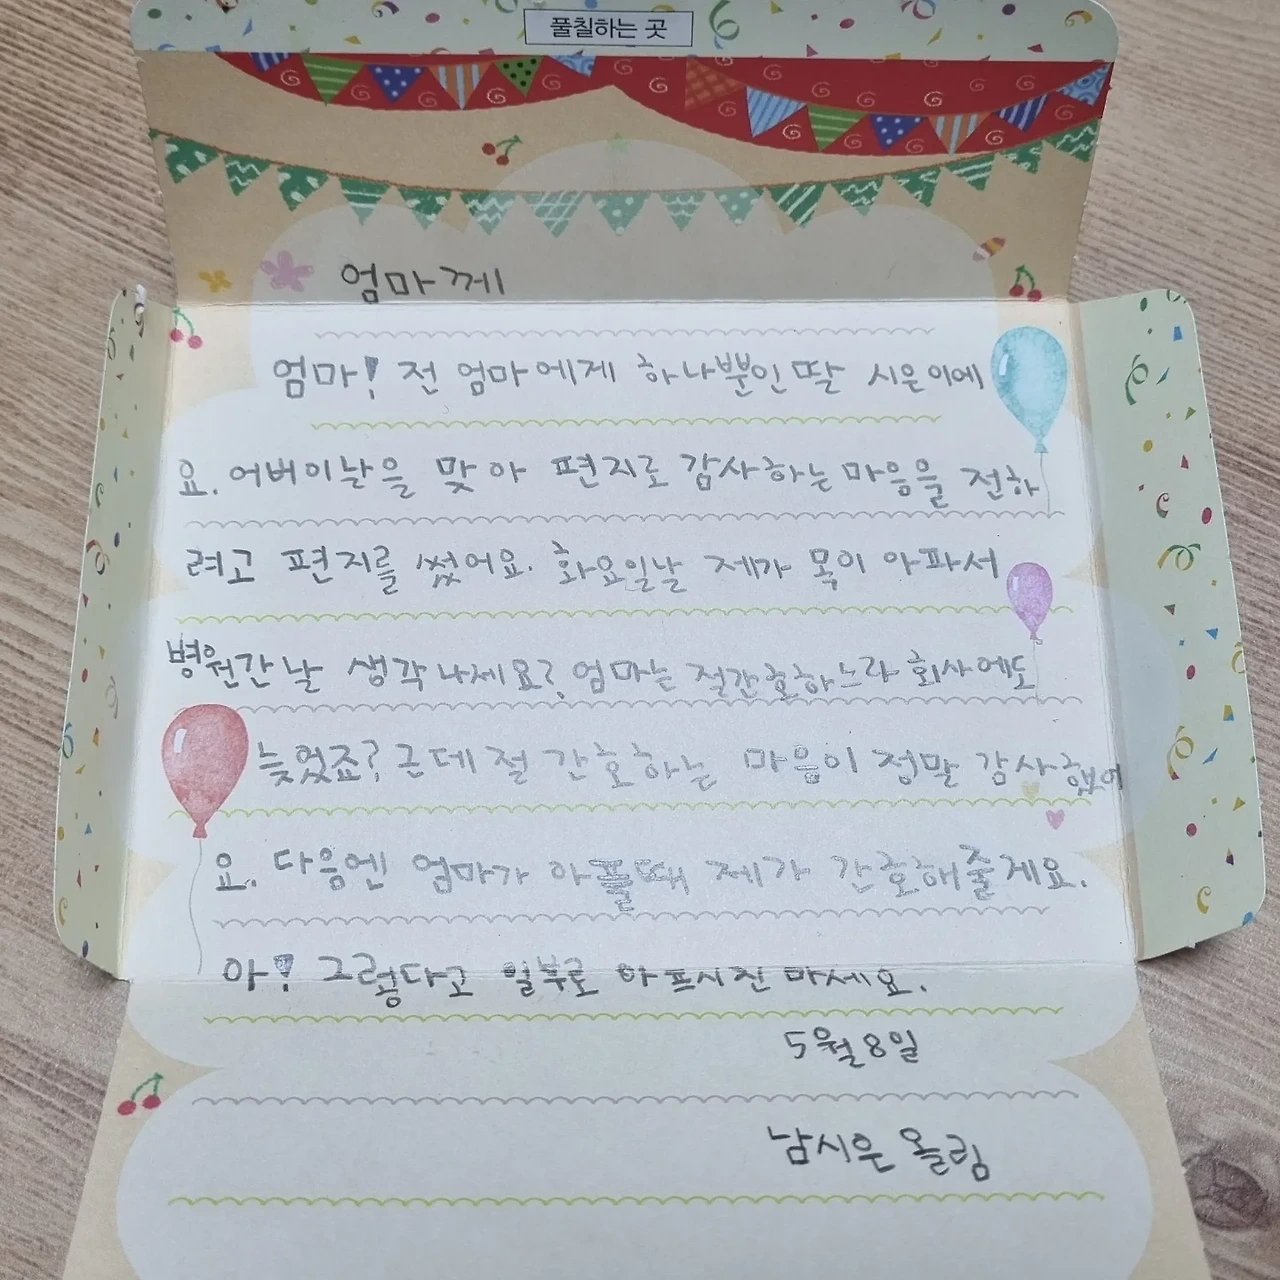 풀칠하는 곳
엄마께
엄마! 전 엄마에게 하나뿐인 딸 시은이에
요. 어버이날을 맞아 편지로 감사하는 마음을 전하
려고 편지를 썼어요. 화요일날 제가 목이 아파서
병원간날 생각나세요? 엄마는 절간호하느라 회사에도
늦었죠? 근데 절 간호하는 마음이 정말 감사했어
요. 다음엔 엄마가 아플때 제가 간호해줄게요.
아! 그렇다고 일부로 아프시진 마세요.
5월 8일
남시은 올림